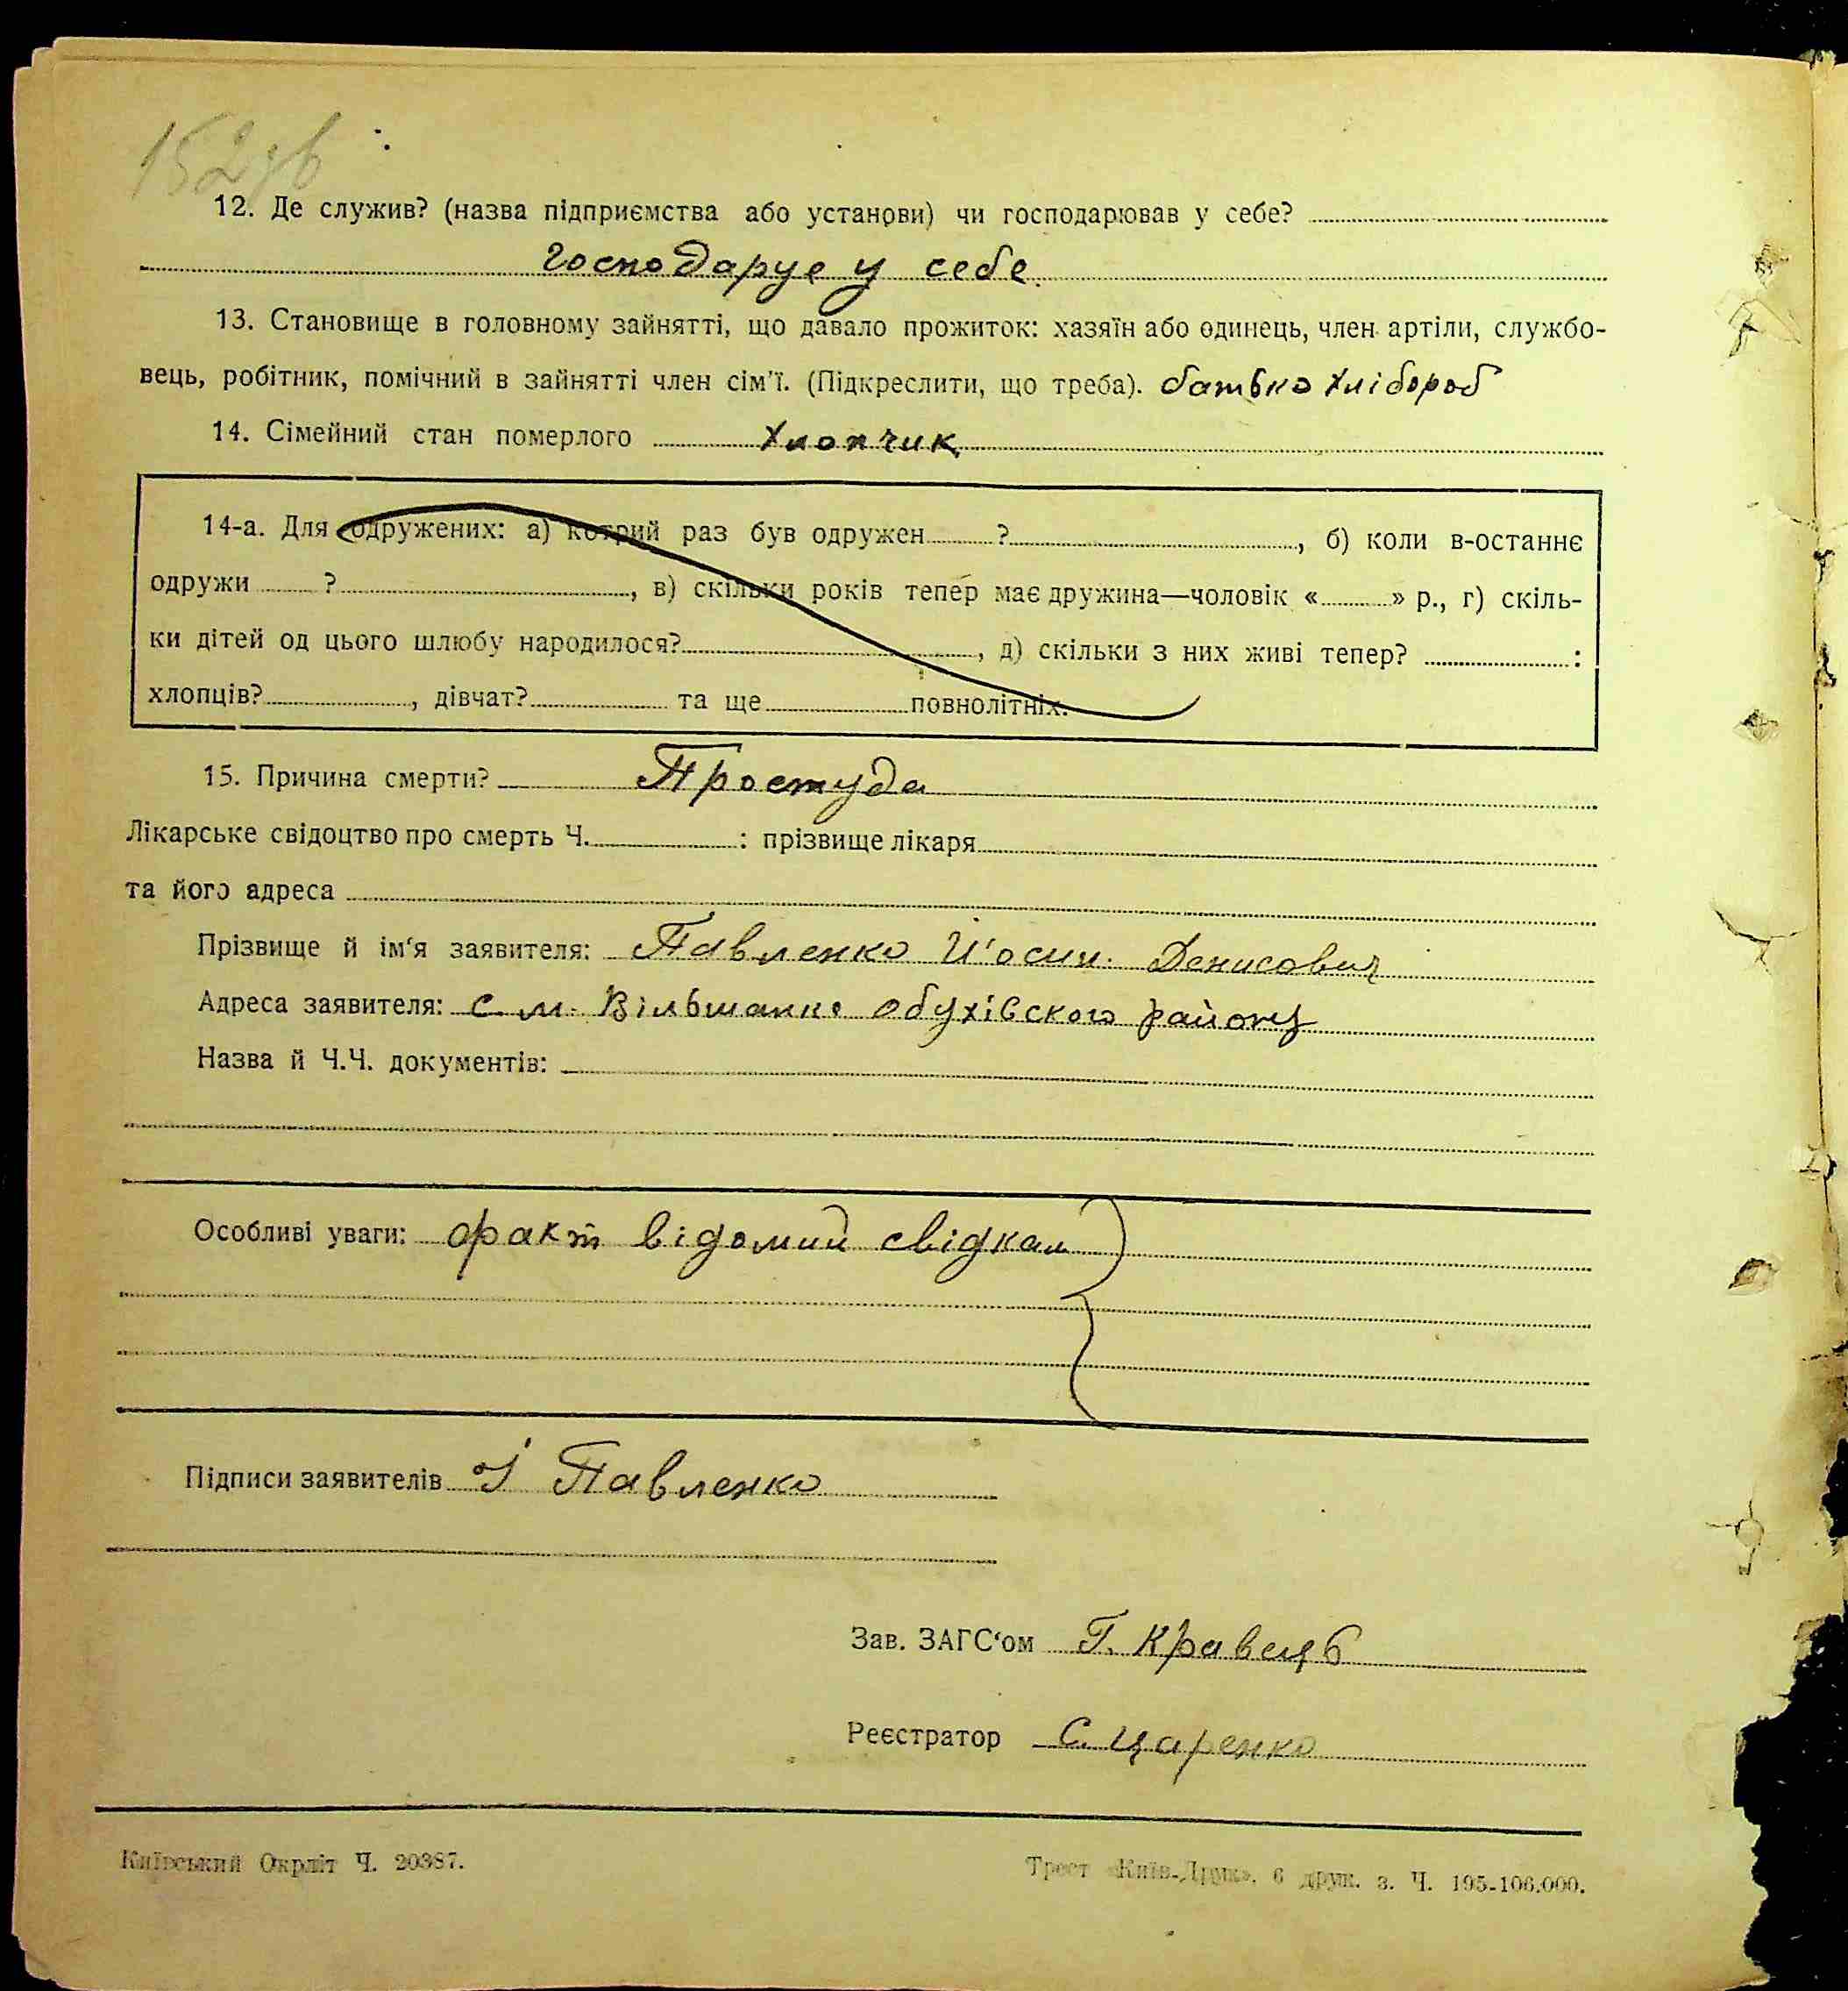 152зв
12. Де служив? (назва підприємства або установи) чи господарював у себе?
господарує у себе
13. Становище в головному зайнятті, що давало прожиток: хазяїн або одинець, член артіли, службо-
вець, робітник, помічний в зайнятті член сім'ї. (Підкреслити, що треба). батько хлібороб
14. Сімейний стан померлого хлопчик
14-а. Для одружених: а) котрий раз був одружен ? , б) коли в-останнє
одружи ? , в) скільки років тепер має дружина—чоловік « » р., г) скіль-
ки дітей од цього шлюбу народилося? , д) скільки з них живі тепер? :
хлопців? , дівчат? та ще повнолітніх.
15. Причина смерти? Простуда
Лікарське свідоцтво про смерть Ч. : прізвище лікаря
та його адреса
Прізвище й ім'я заявителя: Павленко Й'осип Денисович
Адреса заявителя: с. м. Вільшанка Обухівского району
Назва й Ч.Ч. документів:
Особливі уваги: факт відомий свідкам
Підписи заявителів І Павленко
Зав. ЗАГС'ом Г. Кравець
Реєстратор С. Царенко
Київський Окрліт Ч. 20387.
Трест «Київ-Друк», 6 друк. з. Ч. 195-106.000.